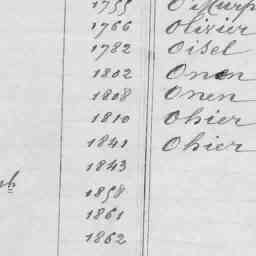 1755 O'Murp
1766 Olivier
1782 Oisel
1802 Onen
1808 Onen
1810 Ohier
1841 Ohier
1843
1858
1861
1862